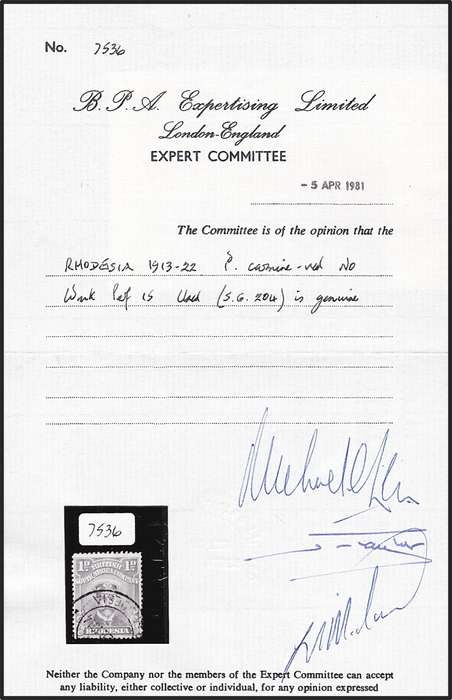 No. 7536
B.P.A. Expertising Limited
London-England
EXPERT COMMITTEE
- 5 APR 1981
The Committee is of the opinion that the
RHODESIA 1913-22 carmine-red No
Wmk Perf 15 Used (S.G. 204) is genuine
7536
1D 1D
BRITISH
SOUTH AFRICA COMPANY
RHODESIA
Neither the Company nor the members of the Expert Committee can accept
any liability, either collective or individual, for any opinion expressed